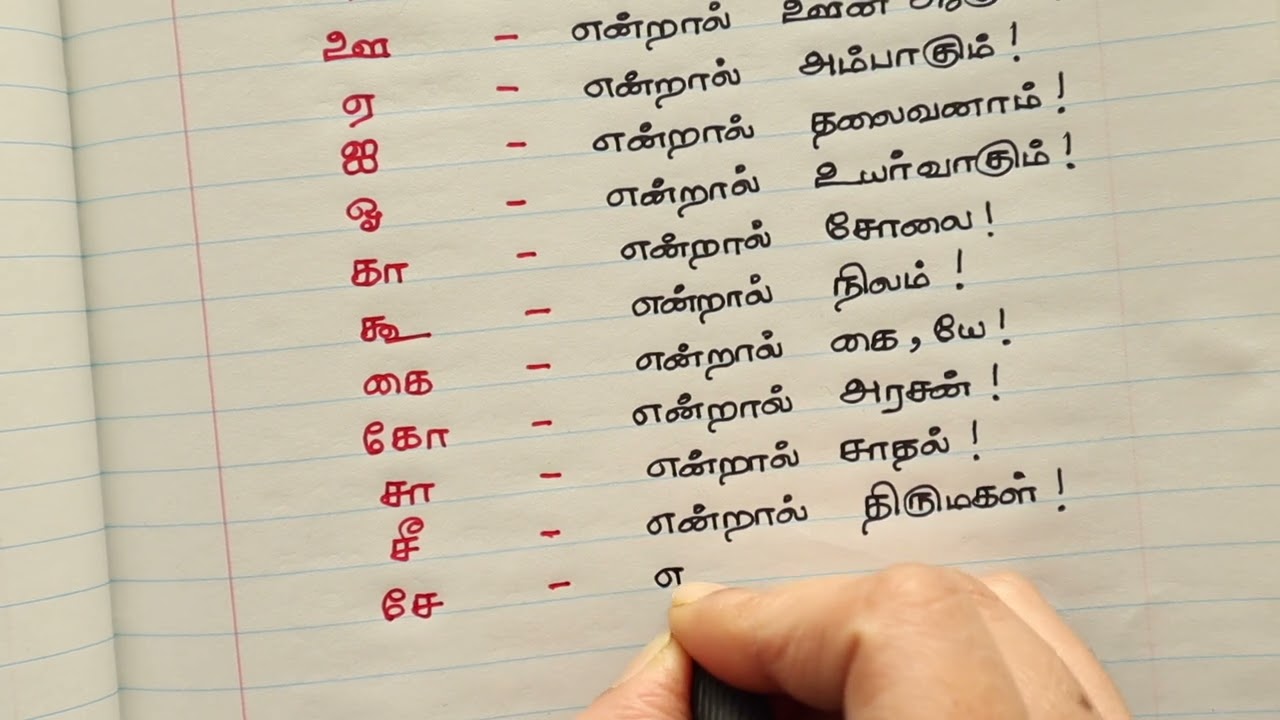 ஊ - என்றால் ஊன்
ஏ - என்றால் அம்பாகும்!
ஐ - என்றால் தலைவனாம்!
ஓ - என்றால் உயர்வாகும்!
கா - என்றால் சோலை!
கூ - என்றால் நிலம்!
கை - என்றால் கை, யே!
கோ - என்றால் அரசன்!
சா - என்றால் சாதல்!
சீ - என்றால் திருமகள்!
சே - எ